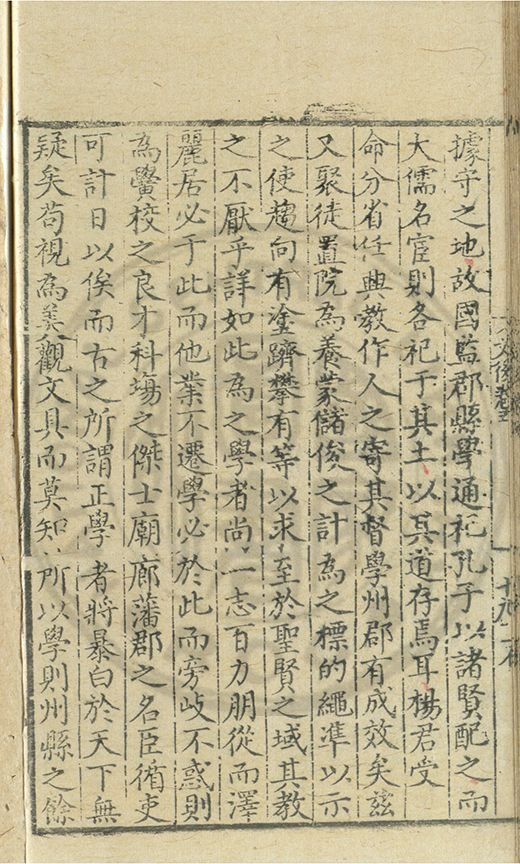 據守之地故國監郡縣學通祀孔子以諸賢配之而
大儒名宦則各祀于其土以其道存焉耳楊君受
命分省任興教作人之寄其督學州郡有成效矣茲
又聚徒置院為養蒙儲俊之計為之標的繩準以示
之使趨向有塗躋攀有等以求至於聖賢之域其教
之不厭乎詳如此為之學者尚一志百力朋從而澤
麗居必于此而他業不遷學必於此而旁歧不惑則
為黌校之良才科場之傑士廟廊藩郡之名臣循吏
可計日以俟而古之所謂正學者將暴白於天下無
疑矣苟視為美觀文具而莫知所以學則州縣之餘